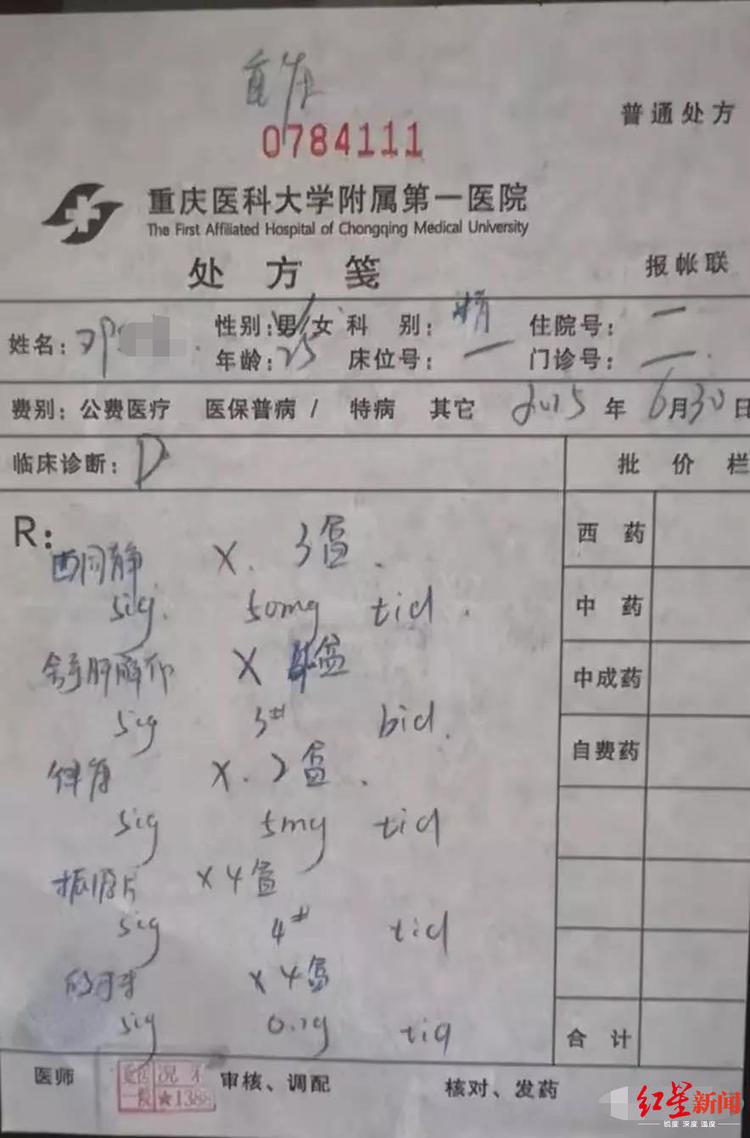 重庆
0784111
普通处方
重庆医科大学附属第一医院
The First Affiliated Hospital of Chongqing Medical University
处方笺
报帐联
姓名: 邓 性别:男/女 科别: 住院号: 一
年龄: 25 床位号: 一 门诊号: 一
费别: 公费医疗 医保普病 / 特病 其它 2015 年 6月30日
临床诊断: D 批价栏
R:
西同静 X. 3盒.
sig. 50mg tid.
舒肝解郁 X 4盒
sig 3# bid.
X. 2盒.
sig 5mg tid
振源片 X 4盒
sig 4# tid
X 4盒
sig tid
西药
中药
中成药
自费药
合计
医师 审核、调配 核对、发药
★138
红星新闻
锐度 深度 温度